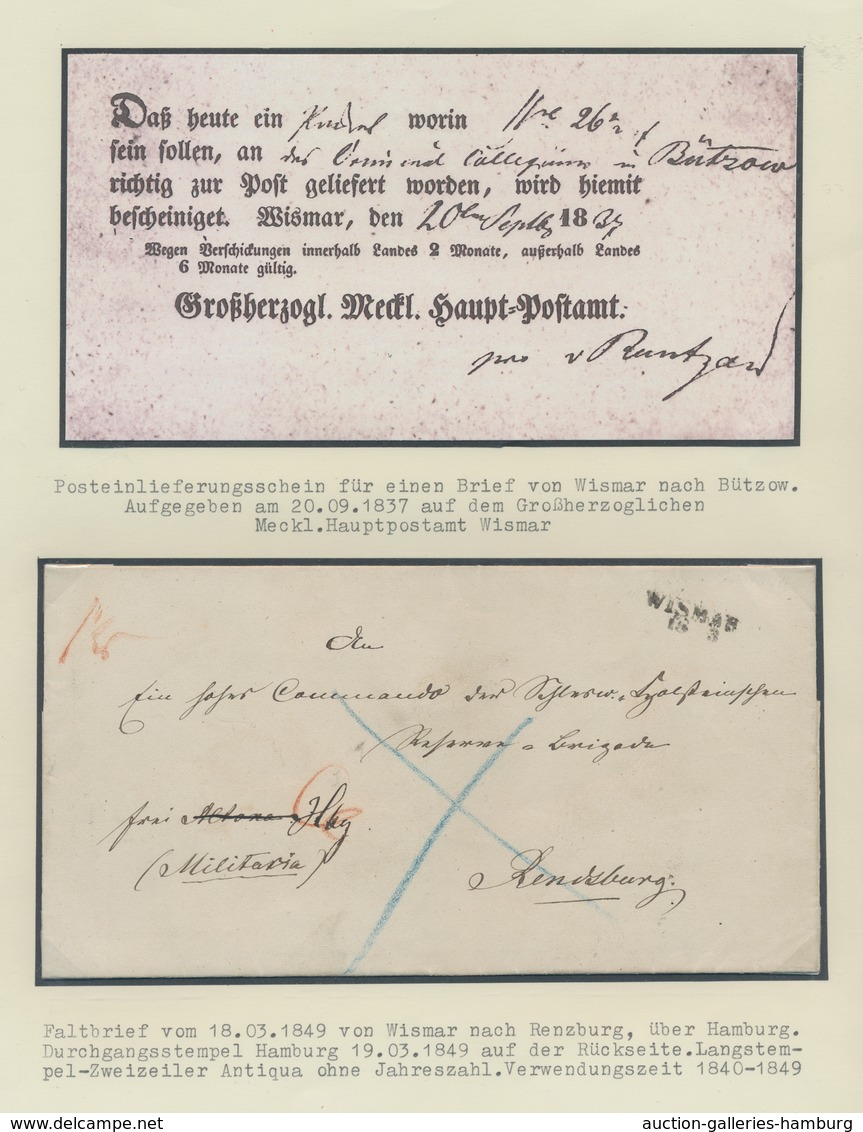 Daß heute ein worin 26
sein sollen, an das Criminal Collegium in Bützow
richtig zur Post geliefert worden, wird hiemit
bescheiniget. Wismar, den 20ten Septbr 1837
Wegen Verschickungen innerhalb Landes 2 Monate, außerhalb Landes
6 Monate gültig.
Großherzogl. Meckl. Haupt-Postamt.
pro v Rantzau
Posteinlieferungsschein für einen Brief von Wismar nach Bützow.
Aufgegeben am 20.09.1837 auf dem Großherzoglichen
Meckl.Hauptpostamt Wismar
WISMAR
18 3
An
Ein hohes Commando der Schlesw. Holsteinschen
Reserve-Brigade
frei Altona Hbg
(Militaria)
Rendsburg.
Faltbrief vom 18.03.1849 von Wismar nach Renzburg, über Hamburg.
Durchgangsstempel Hamburg 19.03.1849 auf der Rückseite.Langstem-
pel-Zweizeiler Antiqua ohne Jahreszahl.Verwendungszeit 1840-1849
delcampe.net
auction-galleries-hamburg